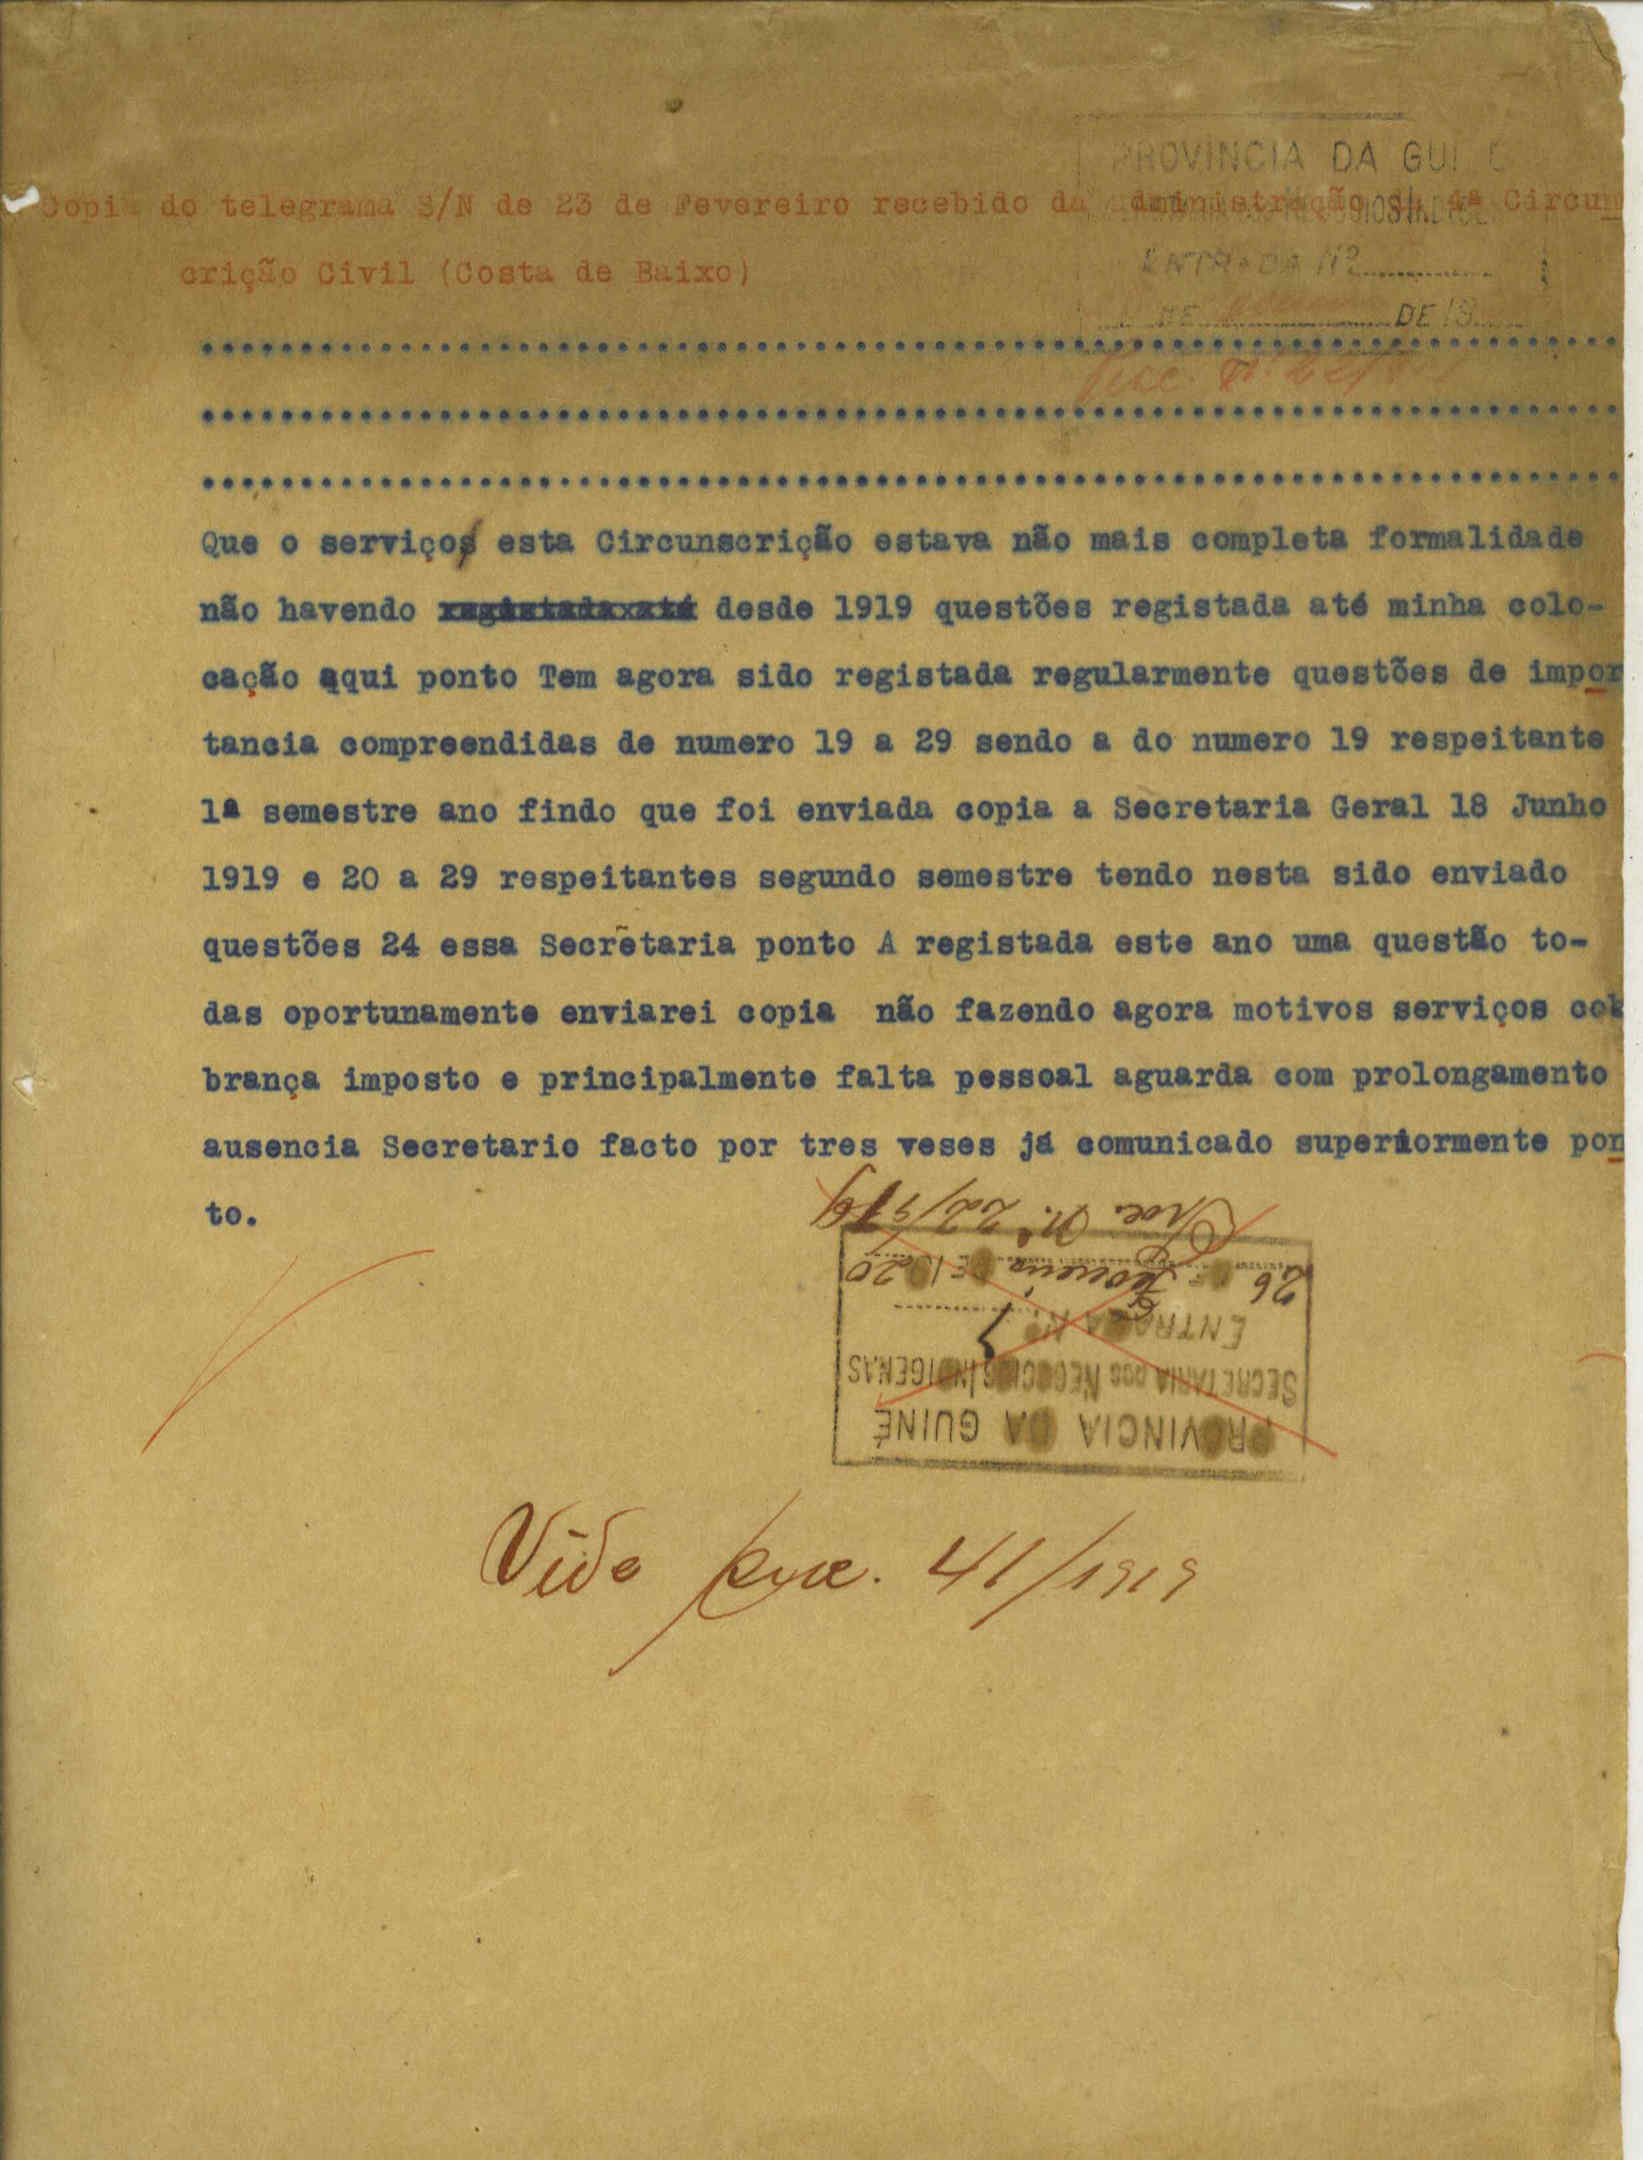 PROVINCIA DA GUI
Copia do telegrama S/N de 23 de Fevereiro recebido da Administração da 4ª Circun
ENTRADA Nº
crição Civil (Costa de Baixo)
DE DE 19
Que o serviços esta Circunscrição estava não mais completa formalidade
não havendo registada até desde 1919 questões registada até minha colo-
cação aqui ponto Tem agora sido registada regularmente questões de impor
tancia compreendidas de numero 19 a 29 sendo a do numero 19 respeitante
1ª semestre ano findo que foi enviada copia a Secretaria Geral 18 Junho
1919 e 20 a 29 respeitantes segundo semestre tendo nesta sido enviado
questões 24 essa Secretaria ponto A registada este ano uma questão to-
das oportunamente enviarei copia não fazendo agora motivos serviços co
brança imposto e principalmente falta pessoal aguarda com prolongamento
ausencia Secretario facto por tres veses já comunicado superiormente pon
to.
PROVINCIA DA GUINÉ
SECRETARIA DOS NEGOCIOS INDIGENAS
ENTRADA Nº
26 DE Fevereiro DE 1920
Proc. Nº 22/919
Vide proc. 41/1919